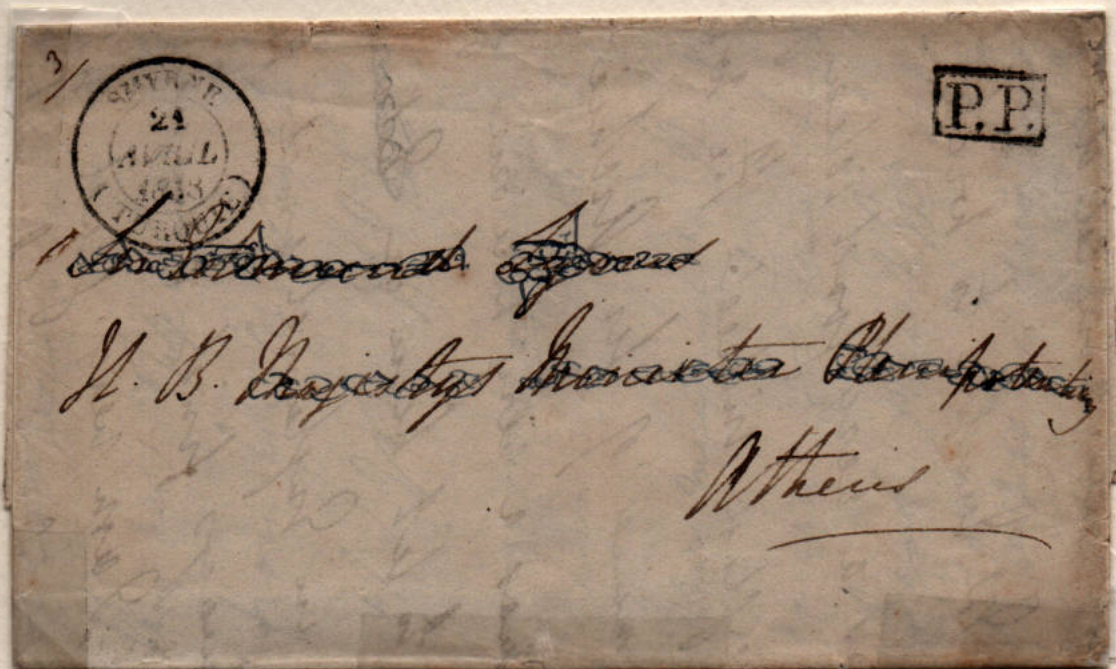 3/
SMYRNE
21
AVRIL
(TURQUIE)
P.P.
H. B. Majestys Minister Plenipotentiary
Athens